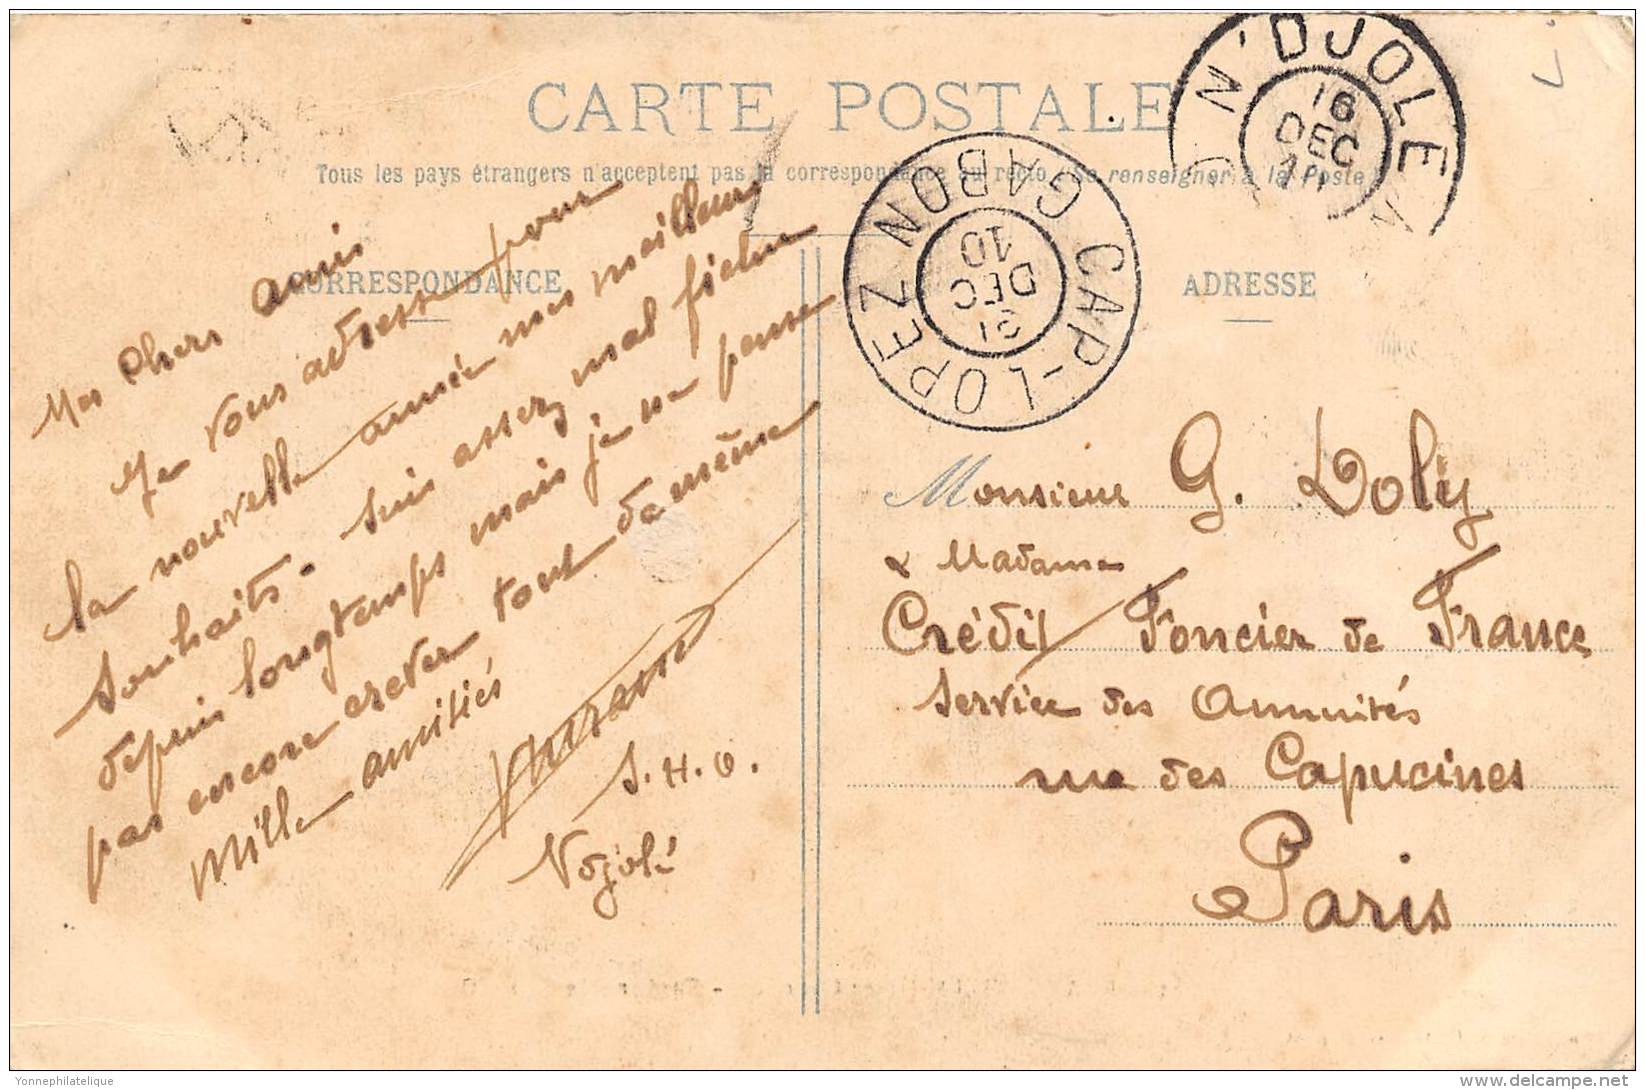 CARTE POSTALE
Tous les pays étrangers n'acceptent pas la correspondance au recto. (Se renseigner à la Poste)
CORRESPONDANCE
Mes chers amis
Je vous adresse pour
la nouvelle année mes meilleurs
souhaits. Suis assez mal fichu
depuis longtemps mais je ne pense
pas encore crever tout de même
Mille amitiés
S.H.O.
Ndjolé
N'DJOLE
16
DEC
11
CAP-LOPEZ GABON
10
DEC
ADRESSE
Monsieur G. Doly
& Madame
Crédit Foncier de France
Service des Annuités
rue des Capucines
Paris
Yonnephilatelique
delcampe.net